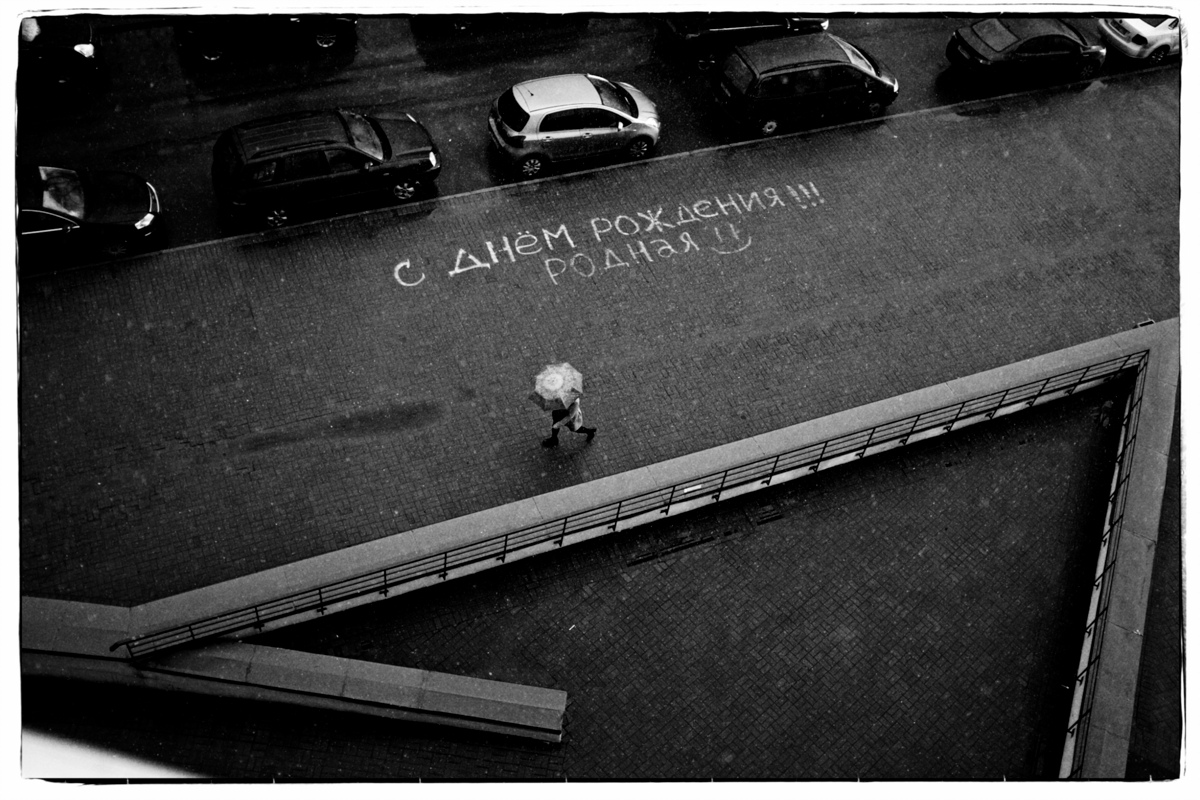 С ДНЁМ РОЖДЕНИЯ!!!
РОДНАЯ